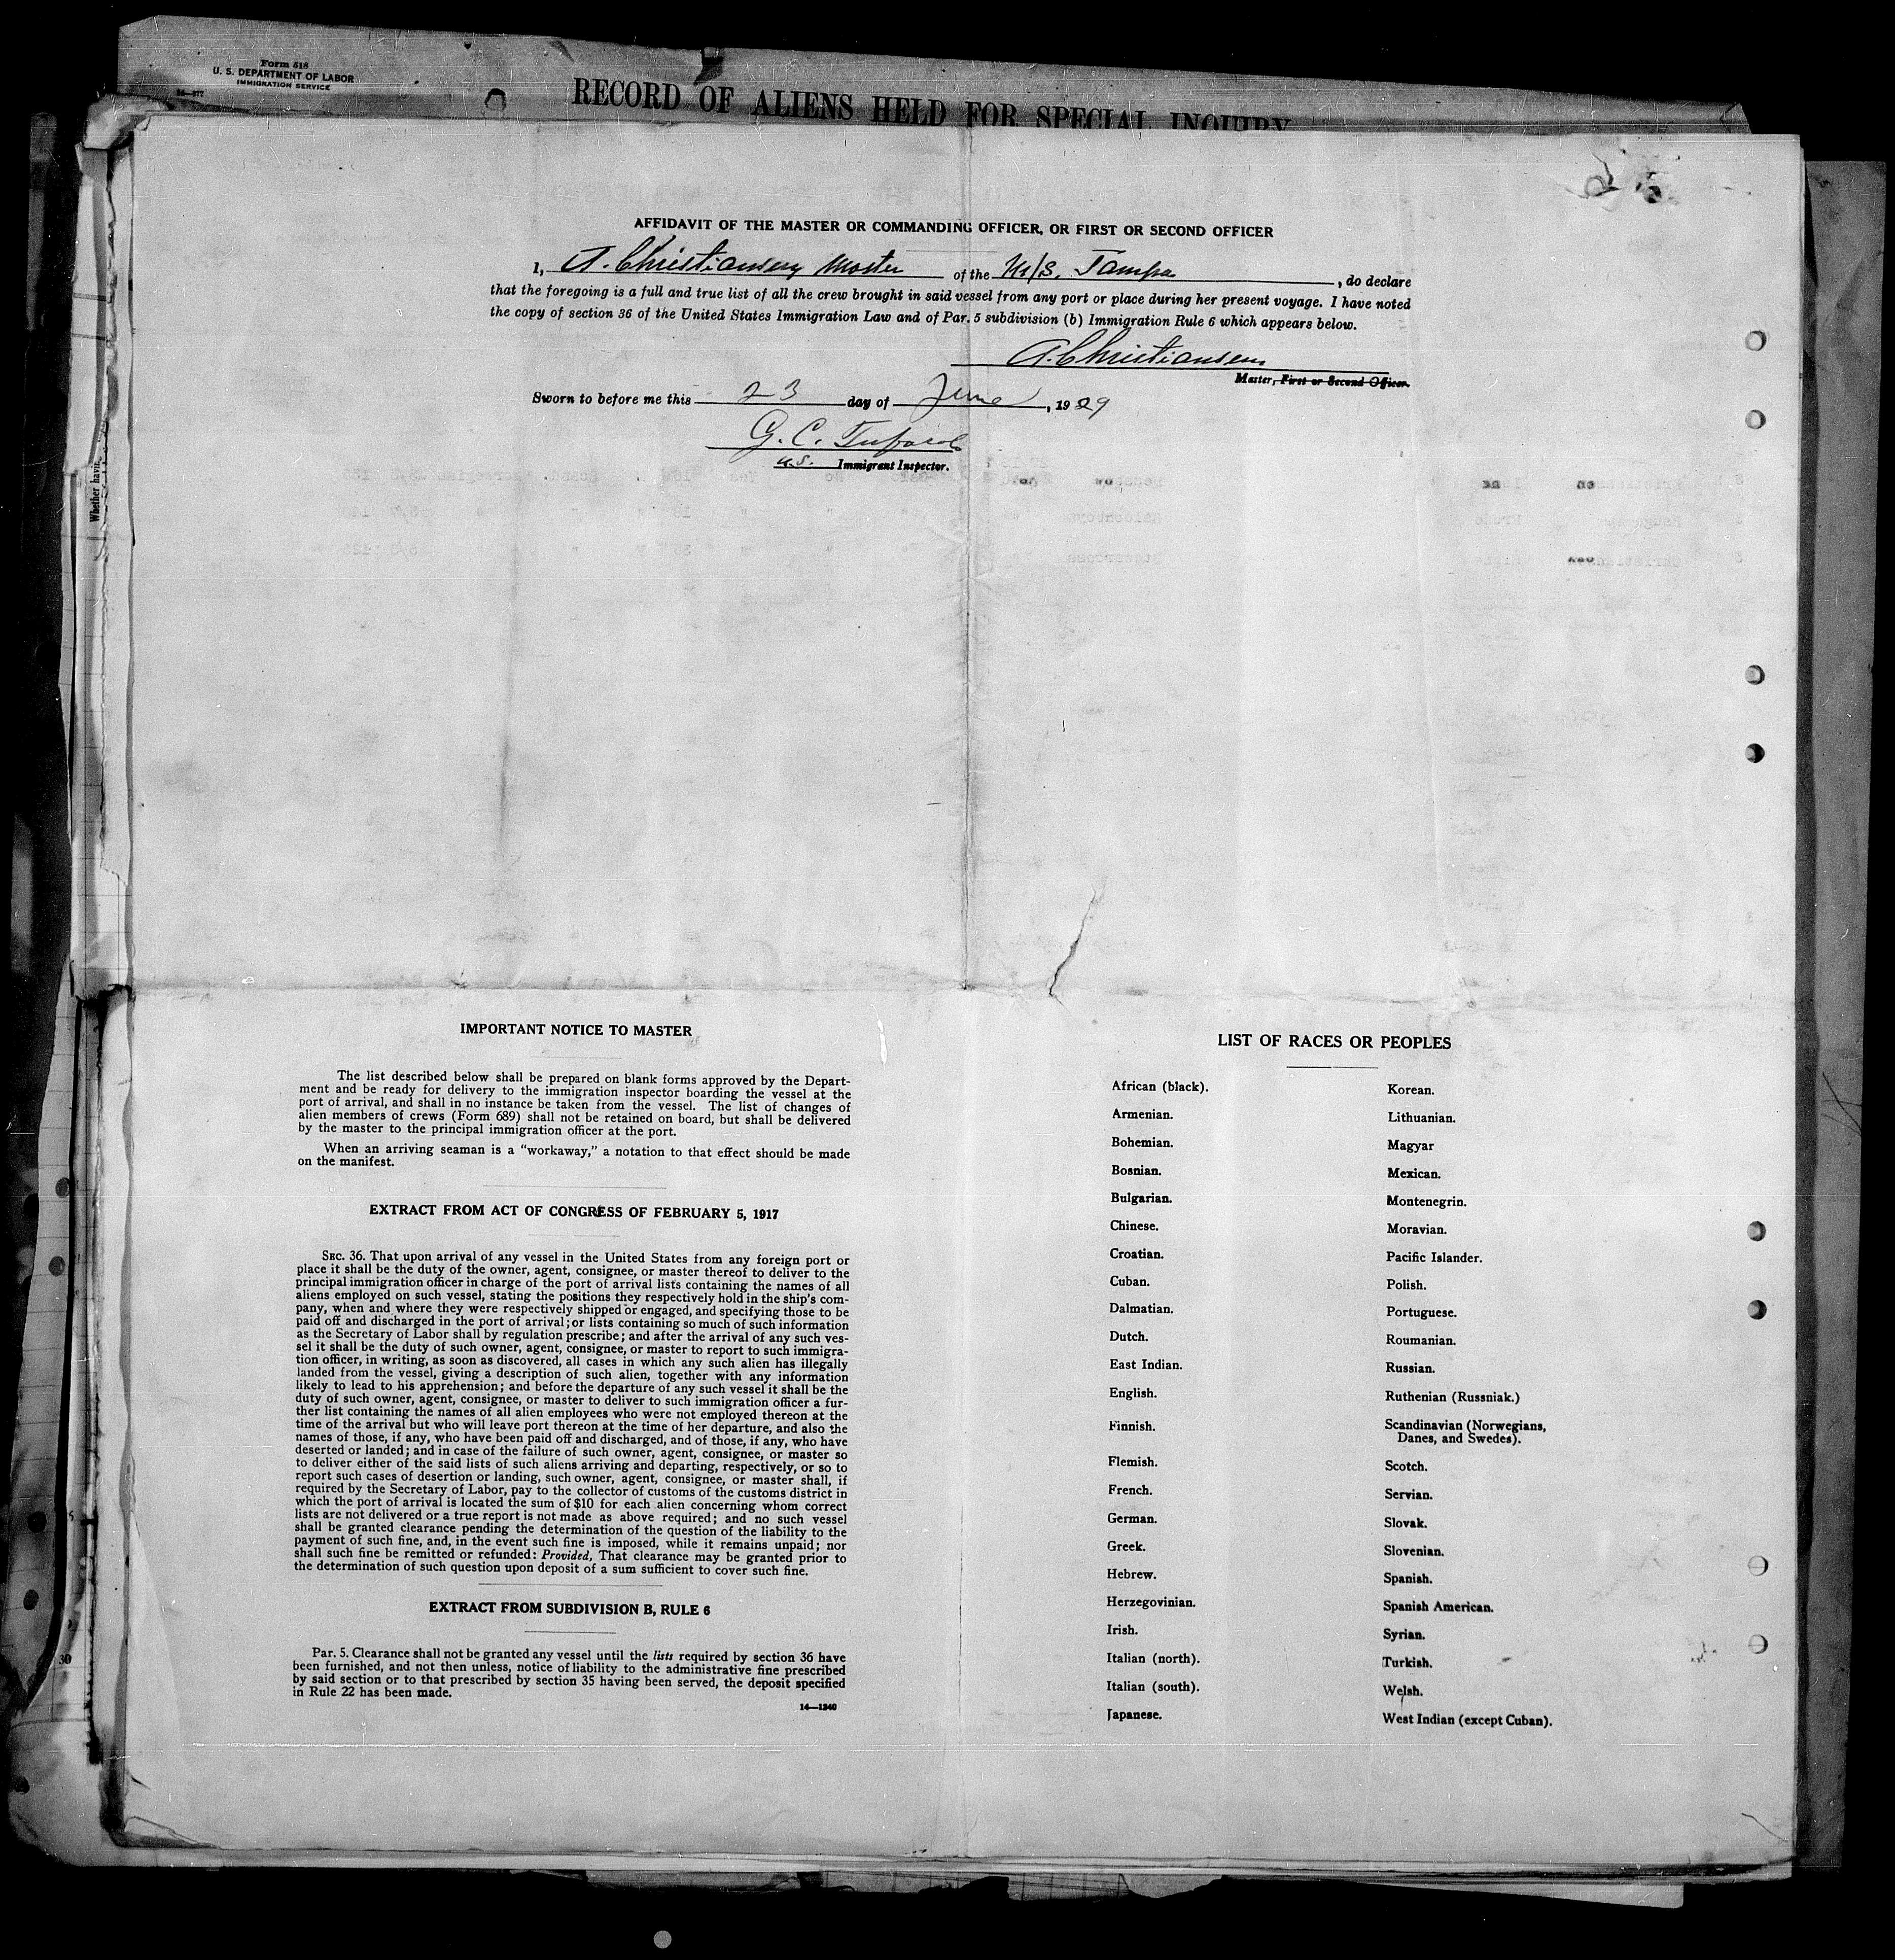 Form 518
U. S. DEPARTMENT OF LABOR
IMMIGRATION SERVICE
RECORD OF ALIENS HELD FOR SPECIAL INQUIRY
AFFIDAVIT OF THE MASTER OR COMMANDING OFFICER, OR FIRST OR SECOND OFFICER
I, A. Christiansen Master of the M/S. Tampa, do declare
that the foregoing is a full and true list of all the crew brought in said vessel from any port or place during her present voyage. I have noted
the copy of section 36 of the United States Immigration Law and of Par. 5 subdivision (b) Immigration Rule 6 which appears below.
A. Christiansen
Master, First or Second Officer.
Sworn to before me this 23 day of June, 1929
G. C.
U.S. Immigrant Inspector.
Whether havin
IMPORTANT NOTICE TO MASTER
The list described below shall be prepared on blank forms approved by the Depart-
ment and be ready for delivery to the immigration inspector boarding the vessel at the
port of arrival, and shall in no instance be taken from the vessel. The list of changes of
alien members of crews (Form 689) shall not be retained on board, but shall be delivered
by the master to the principal immigration officer at the port.
When an arriving seaman is a “workaway,” a notation to that effect should be made
on the manifest.
EXTRACT FROM ACT OF CONGRESS OF FEBRUARY 5, 1917
SEC. 36. That upon arrival of any vessel in the United States from any foreign port or
place it shall be the duty of the owner, agent, consignee, or master thereof to deliver to the
principal immigration officer in charge of the port of arrival lists containing the names of all
aliens employed on such vessel, stating the positions they respectively hold in the ship's com-
pany, when and where they were respectively shipped or engaged, and specifying those to be
paid off and discharged in the port of arrival; or lists containing so much of such information
as the Secretary of Labor shall by regulation prescribe; and after the arrival of any such ves-
sel it shall be the duty of such owner, agent, consignee, or master to report to such immigra-
tion officer, in writing, as soon as discovered, all cases in which any such alien has illegally
landed from the vessel, giving a description of such alien, together with any information
likely to lead to his apprehension; and before the departure of any such vessel it shall be the
duty of such owner, agent, consignee, or master to deliver to such immigration officer a fur-
ther list containing the names of all alien employees who were not employed thereon at the
time of the arrival but who will leave port thereon at the time of her departure, and also the
names of those, if any, who have been paid off and discharged, and of those, if any, who have
deserted or landed; and in case of the failure of such owner, agent, consignee, or master so
to deliver either of the said lists of such aliens arriving and departing, respectively, or so to
report such cases of desertion or landing, such owner, agent, consignee, or master shall, if
required by the Secretary of Labor, pay to the collector of customs of the customs district in
which the port of arrival is located the sum of $10 for each alien concerning whom correct
lists are not delivered or a true report is not made as above required; and no such vessel
shall be granted clearance pending the determination of the question of the liability to the
payment of such fine, and, in the event such fine is imposed, while it remains unpaid; nor
shall such fine be remitted or refunded: Provided, That clearance may be granted prior to
the determination of such question upon deposit of a sum sufficient to cover such fine.
EXTRACT FROM SUBDIVISION B, RULE 6
Par. 5. Clearance shall not be granted any vessel until the lists required by section 36 have
been furnished, and not then unless, notice of liability to the administrative fine prescribed
by said section or to that prescribed by section 35 having been served, the deposit specified
in Rule 22 has been made.
14—1240
30
LIST OF RACES OR PEOPLES
African (black).
Armenian.
Bohemian.
Bosnian.
Bulgarian.
Chinese.
Croatian.
Cuban.
Dalmatian.
Dutch.
East Indian.
English.
Finnish.
Flemish.
French.
German.
Greek.
Hebrew.
Herzegovinian.
Irish.
Italian (north).
Italian (south).
Japanese.
Korean.
Lithuanian.
Magyar
Mexican.
Montenegrin.
Moravian.
Pacific Islander.
Polish.
Portuguese.
Roumanian.
Russian.
Ruthenian (Russniak.)
Scandinavian (Norwegians,
Danes, and Swedes).
Scotch.
Servian.
Slovak.
Slovenian.
Spanish.
Spanish American.
Syrian.
Turkish.
Welsh.
West Indian (except Cuban).